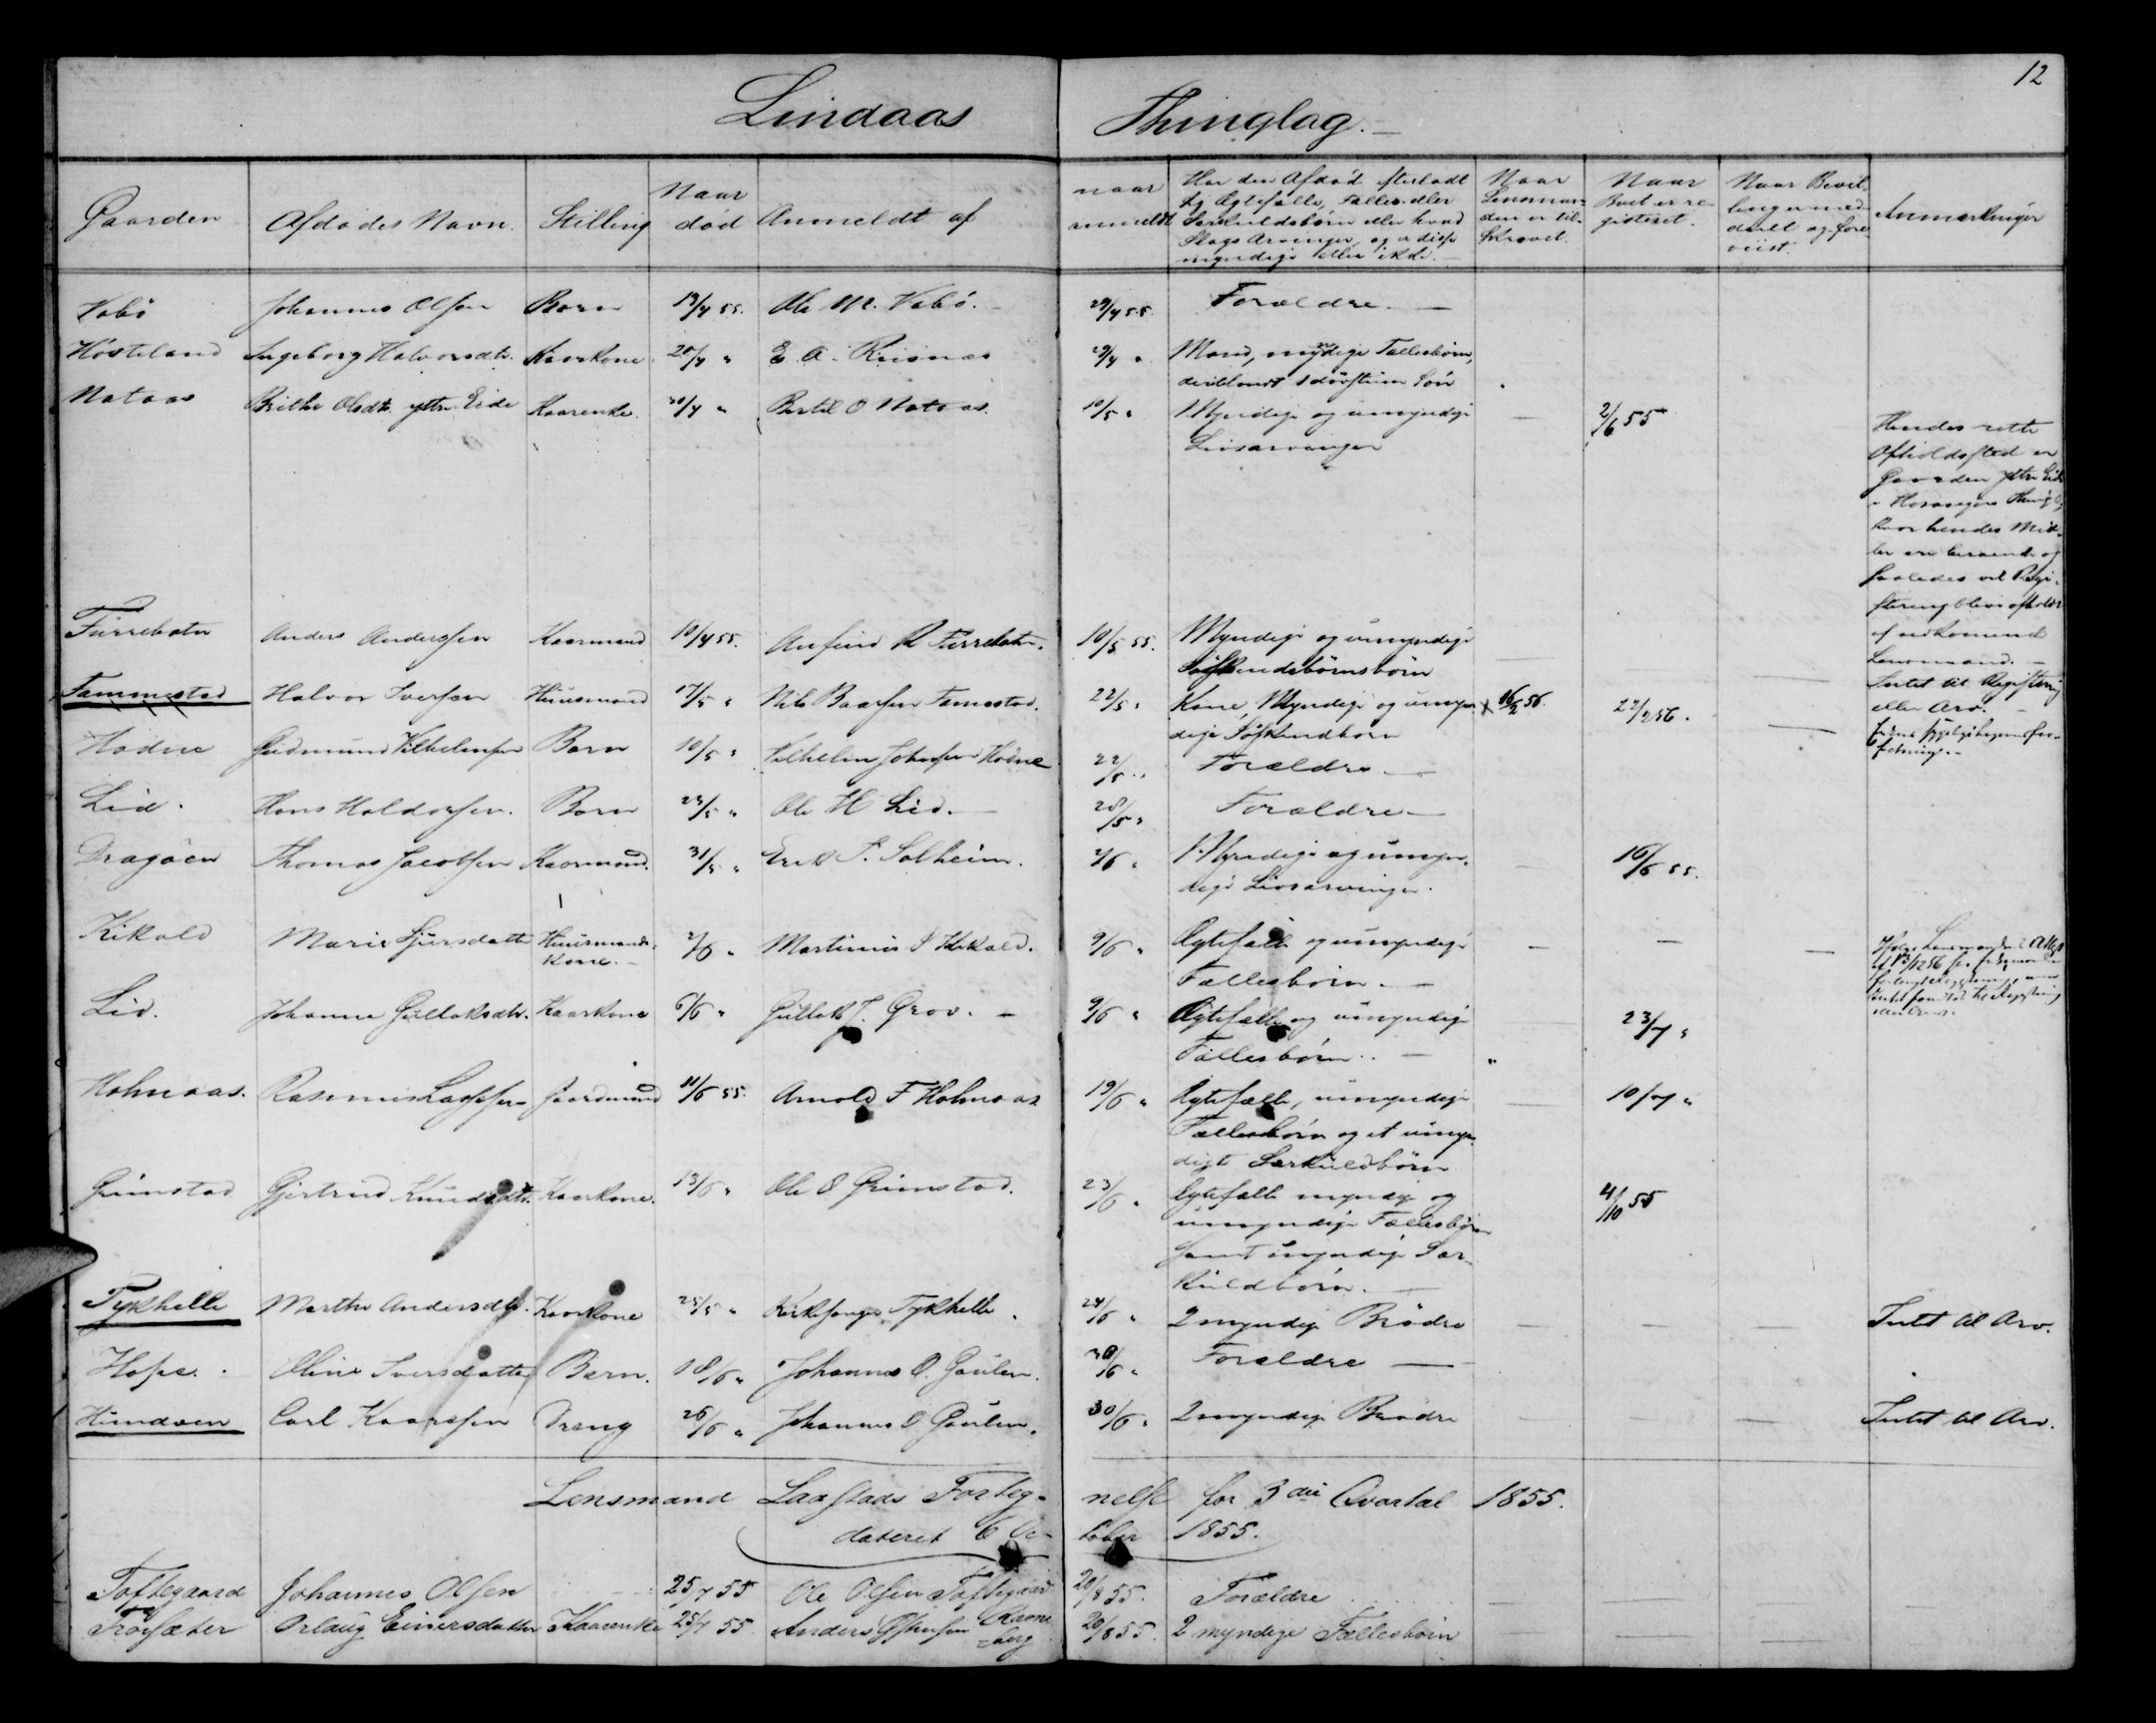 12
Lindaas Thinglag.
Gaarden Afdødes Navn. Stilling Naar død Anmeldt af naar anmeldt Har den Afdøde efterladt sig Ægtefælle, Fælles- eller Særkuldsbørn eller hvad Slags Arvinger, og er disse myndige eller ikke. Naar Lensmanden er tilskrevet. Naar Boet er registeret. Naar Bevilling er meddeelt og foreviist. Anmærkninger
Vabø Johannes Olsen Barn 13/4 55. Ole M. Vabø. 29/4 55. Forældre.
Høsteland Ingeborg Halvorsdtr. Kaarkone 20/4 " E. A. Risnæs 29/4 " Mand, myndige Fællesbørn,
deriblandt 1 døvstum Søn
Nataas Brithe Olsdtr. yttre Eide Kaarenke. 30/4 " Bertil O Nataas. 10/5 " Myndige og umyndige — 2/6 55
Livsarvinger
Hendes rette
Opholdssted er
Gaarden yttre Eide
i Thing
hvor hendes Mid-
ler ere beroende og
saaledes vil Regi-
stering blive afholdt
af vedkommende
Lensmand.
Furrebotn Anders Anderssen Kaarmand 10/4 55. Anfind R Furrebotn. 10/5 55. Myndige og umyndige
Søskendebørnsbørn
Intet til Registering
eller Arv.
Fammestad Halvor Iversen Huusmand 17/5 " Nils Baarsen Famestad. 22/5 " Kone, Myndige og umyn- x 16/2 56. 22/2 56.
dige Søskendbørn
Hodne Gudmund Vilhelmsen Barn 10/5 " Vilhelm Johnsen Hodne 22/5 " Forældre
Lid. Hans Haldorsen. Barn 23/5 " Ole H Lid. 28/5 " Forældre
Dragøen Thomas Jacobsen Kaarmand. 31/5 " Erik P. Solheim. 2/6 " Myndige og umyn- — 16/6 55.
dige Livsarvinger.
Kikald Marie Sjursdatter Huusmands- 2/6 " Martinus I Kikald. 9/6 " Ægtefælle og umyndige — — —
kone. Fællesbørn.
Lid. Johanne Gulleiksdtr. Kaarkone 6/6 " Gulleik J. Grov. 9/6 " Ægtefælle og umyndige 23/7 "
Fællesbørn.
Holmaas. Rasmus Lassesen Gaardmand 11/6 55. Arnold F Holmaas 19/6 " Ægtefælle, umyndige — 10/7 "
Fællesbørn og et umyn-
digt Særkuldbørn
Grimstad Gjertrud Knudsdtr. Kaarkone. 13/6 " Ole O Grimstad. 23/6 " Ægtefælle myndig og 4/10 55
umyndige Fællesbørn
samt umyndige Sær-
kuldbørn.
Tykhelle Marthe Andersdtr. Kaarkone 25/5 " Kirkesanger Tykhelle. 24/6 " 2 myndige Brødre — — — Intet til Arv.
Hope. Oline Iversdatter Barn. 18/6 " Johannes O. Gaulen. 30/6 " Forældre —
Hundven Carl Kaaresen Dreng 26/6 " Johannes O Gaulen. 30/6 " 2 myndige Brødre — — Intet til Arv.
Lensmand Laastads Forteg- nelse for 3die Qvartal 1855.
dateret 6 Oc- tober 1855.
Toftegaard Johannes Olsen 25/7 55 Ole Olsen Toftegaard 20/8 55. Forældre
Trovsæter Orlaug Einersdatter Kaarenke 25/7 55 Anders 20/8 55. 2 myndige Fællesbørn